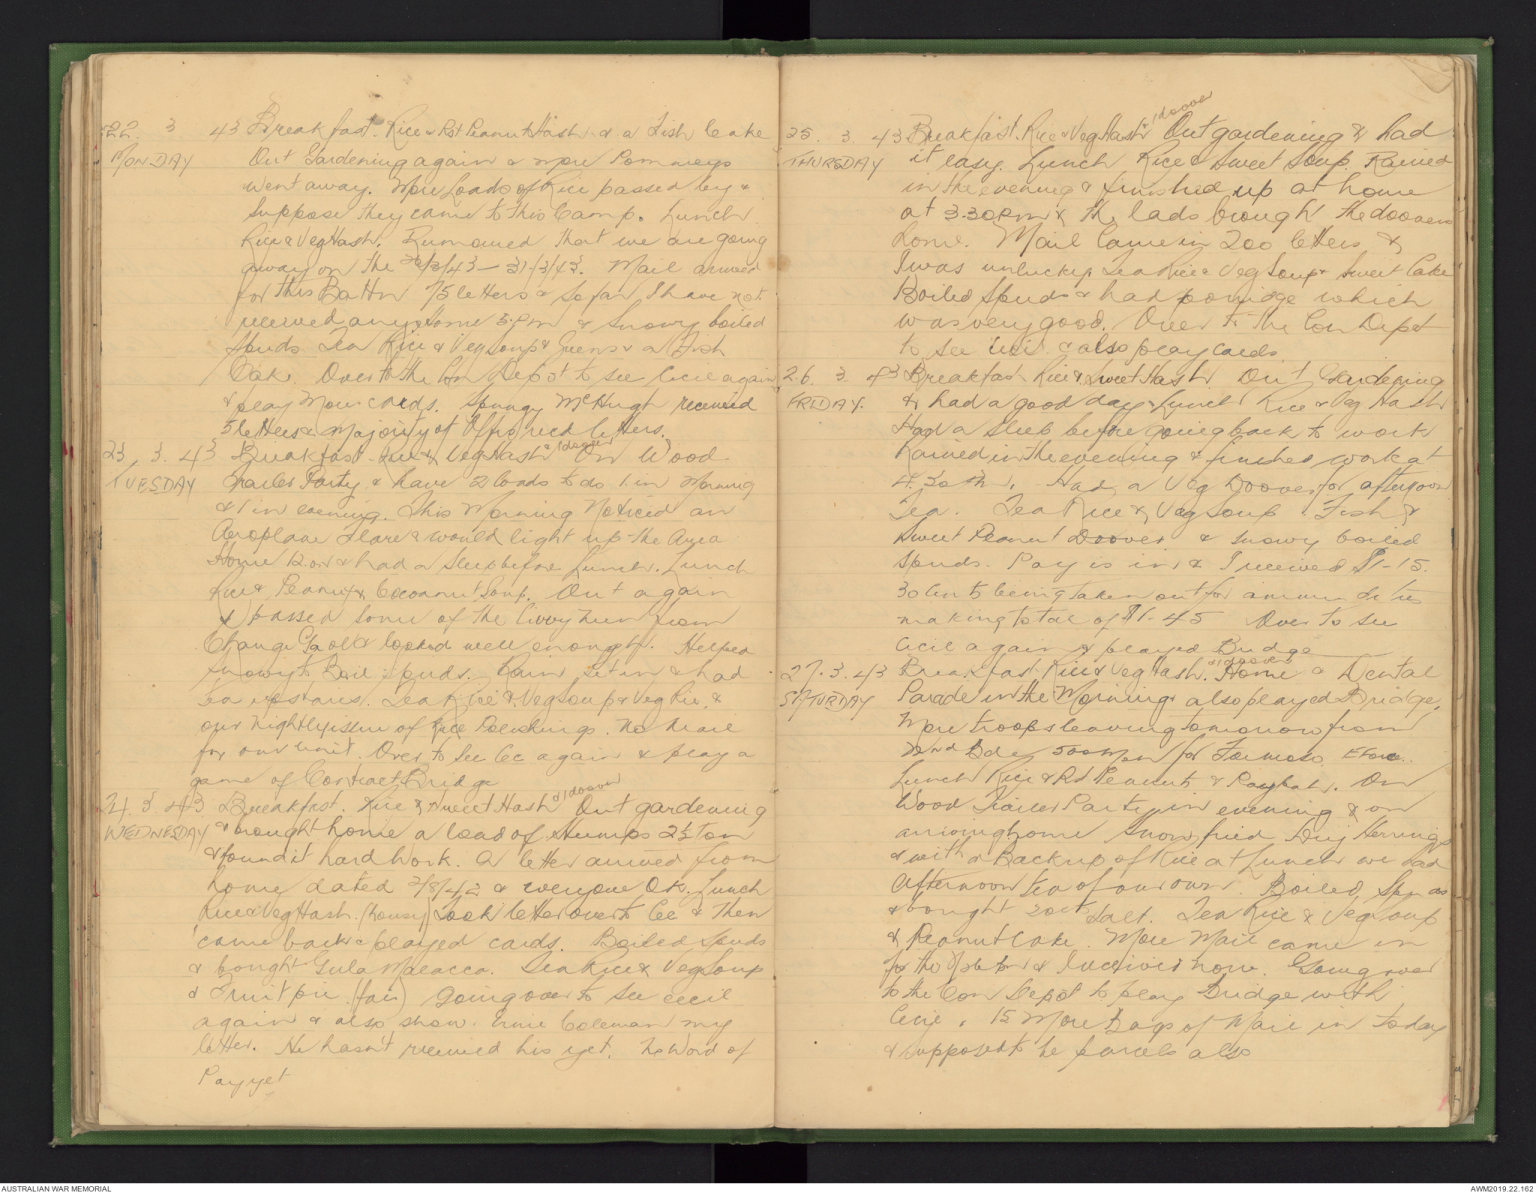 22. 3 43 Breakfast. Rice & Rst Peanut Hash & a Fish Cake
MONDAY Out Gardening again & more Pommeys
went away. More Loads of Rice passed by &
suppose they came to this Camp. Lunch
Rice & Veg Hash. Rumoured that we are going
away on the 30/3/43 – 31/3/43. Mail arrived
for this Battn 75 letters & so far I have not
received any. Home 5 pm & Snowy boiled
spuds. Tea Rice & Veg Soup & Greens & a Fish
Cake. Over to the Con Depot to see Cecil again
& play more cards. Spungy McHugh received
5 letters & majority of Offrs recd letters.
23. 3. 43 Breakfast. Rice & Veg Hash & 1 doover On Wood
TUESDAY Trailer Party & have 2 loads to do 1 in Morning
& 1 in evening. This Morning Noticed an
Aeroplane Flare & would light up the Area
Home 12. & had a sleep before Lunch. Lunch
Rice & Peanut & Cocoanut Soup. Out again
& passed some of the Civvy men from
Change Gaol & looked well enough. Helped
Snowy to Boil Spuds. Rain set in & had
tea upstairs. Tea Rice & Veg Soup & Veg Rice &
our nightly issue of Rice Polishings. No mail
for our unit. Over to see Cec again & play a
game of Contract Bridge
24. 3. 43 Breakfast. Rice & Sweet Hash & 1 doover Out gardening
WEDNESDAY & brought home a load of stumps 2½ Ton
& found it hard Work. A letter arrived from
home dated 2/8/42 & everyone O.K. Lunch
Rice & Veg Hash. (Lousy) Took letter over to Cec & then
came back & played cards. Boiled spuds
& bought Gula Malacca. Tea Rice & Veg Soup
& Fruit pie (fair) Going over to see Cecil
again & also show Ernie Coleman my
letter. He hasn't received his yet. No Word of
Pay yet
25. 3. 43 Breakfast. Rice & Veg Hash & 1 doover Out gardening & had
THURSDAY it easy. Lunch Rice & Sweet Soup. Rained
in the evening & finished up at home
at 3.30 PM & the lads brought the doovers
home. Mail Came in 200 letters &
I was unlucky. Tea Rice & Veg Soup & Sweet Cake
Boiled Spuds & had porridge which
was very good. Over to the Con Depot
to see Cecil & also play cards.
26. 3. 43 Breakfast Rice & Sweet Hash. Out Gardening
FRIDAY. & had a good day. Lunch Rice & Veg Hash
Had a sleep before going back to work
Rained in the evening & finished work at
4.30. Had a Veg Doover for afternoon
Tea. Tea Rice & Veg Soup. Fish &
Sweet Peanut Doover & Snowy boiled
Spuds. Pay is in & I received $1-15.
30 Cents being taken out for amenities
making total of $1-45 Over to see
Cecil again & played Bridge
27. 3. 43 Breakfast Rice & Veg Hash. & 1 doover Home & Dental
SATURDAY Parade in the Morning & also played Bridge.
More troops leaving tomorrow from
22nd Bde 500 men for Formosa E Force.
Lunch Rice & Rst Peanuts &. On
Wood Trailer Party in evening & on
arriving home Snowy fried Herrings
& with a Backup of Rice at Lunch we had
Afternoon tea of our own. Boiled Spuds
& bought 20ct Salt. Tea Rice & Veg Soup
& Peanut Cake. More Mail came in
for the & I received none. Going over
to the Con Depot to play Bridge with
Cecil. 15 More Bags of Mail in today
& supposed to be parcels also
AUSTRALIAN WAR MEMORIAL
AWM2019.22.162